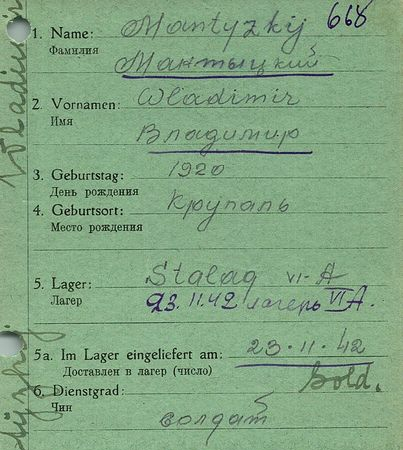 668
1. Name: Mantyzkij
Фамилия Мантыцкий
2. Vornamen: Wladimir
Имя
Владимир
3. Geburtstag: 1920
День рождения
4. Geburtsort: Крупаль
Место рождения
5. Lager: Stalag VI-A
Лагер 23.11.42 лагерь VI A.
5a. Im Lager eingeliefert am: 23·11·42
Доставлен в лагер (число)
6. Dienstgrad: Sold.
Чин
солдат
Wladimir